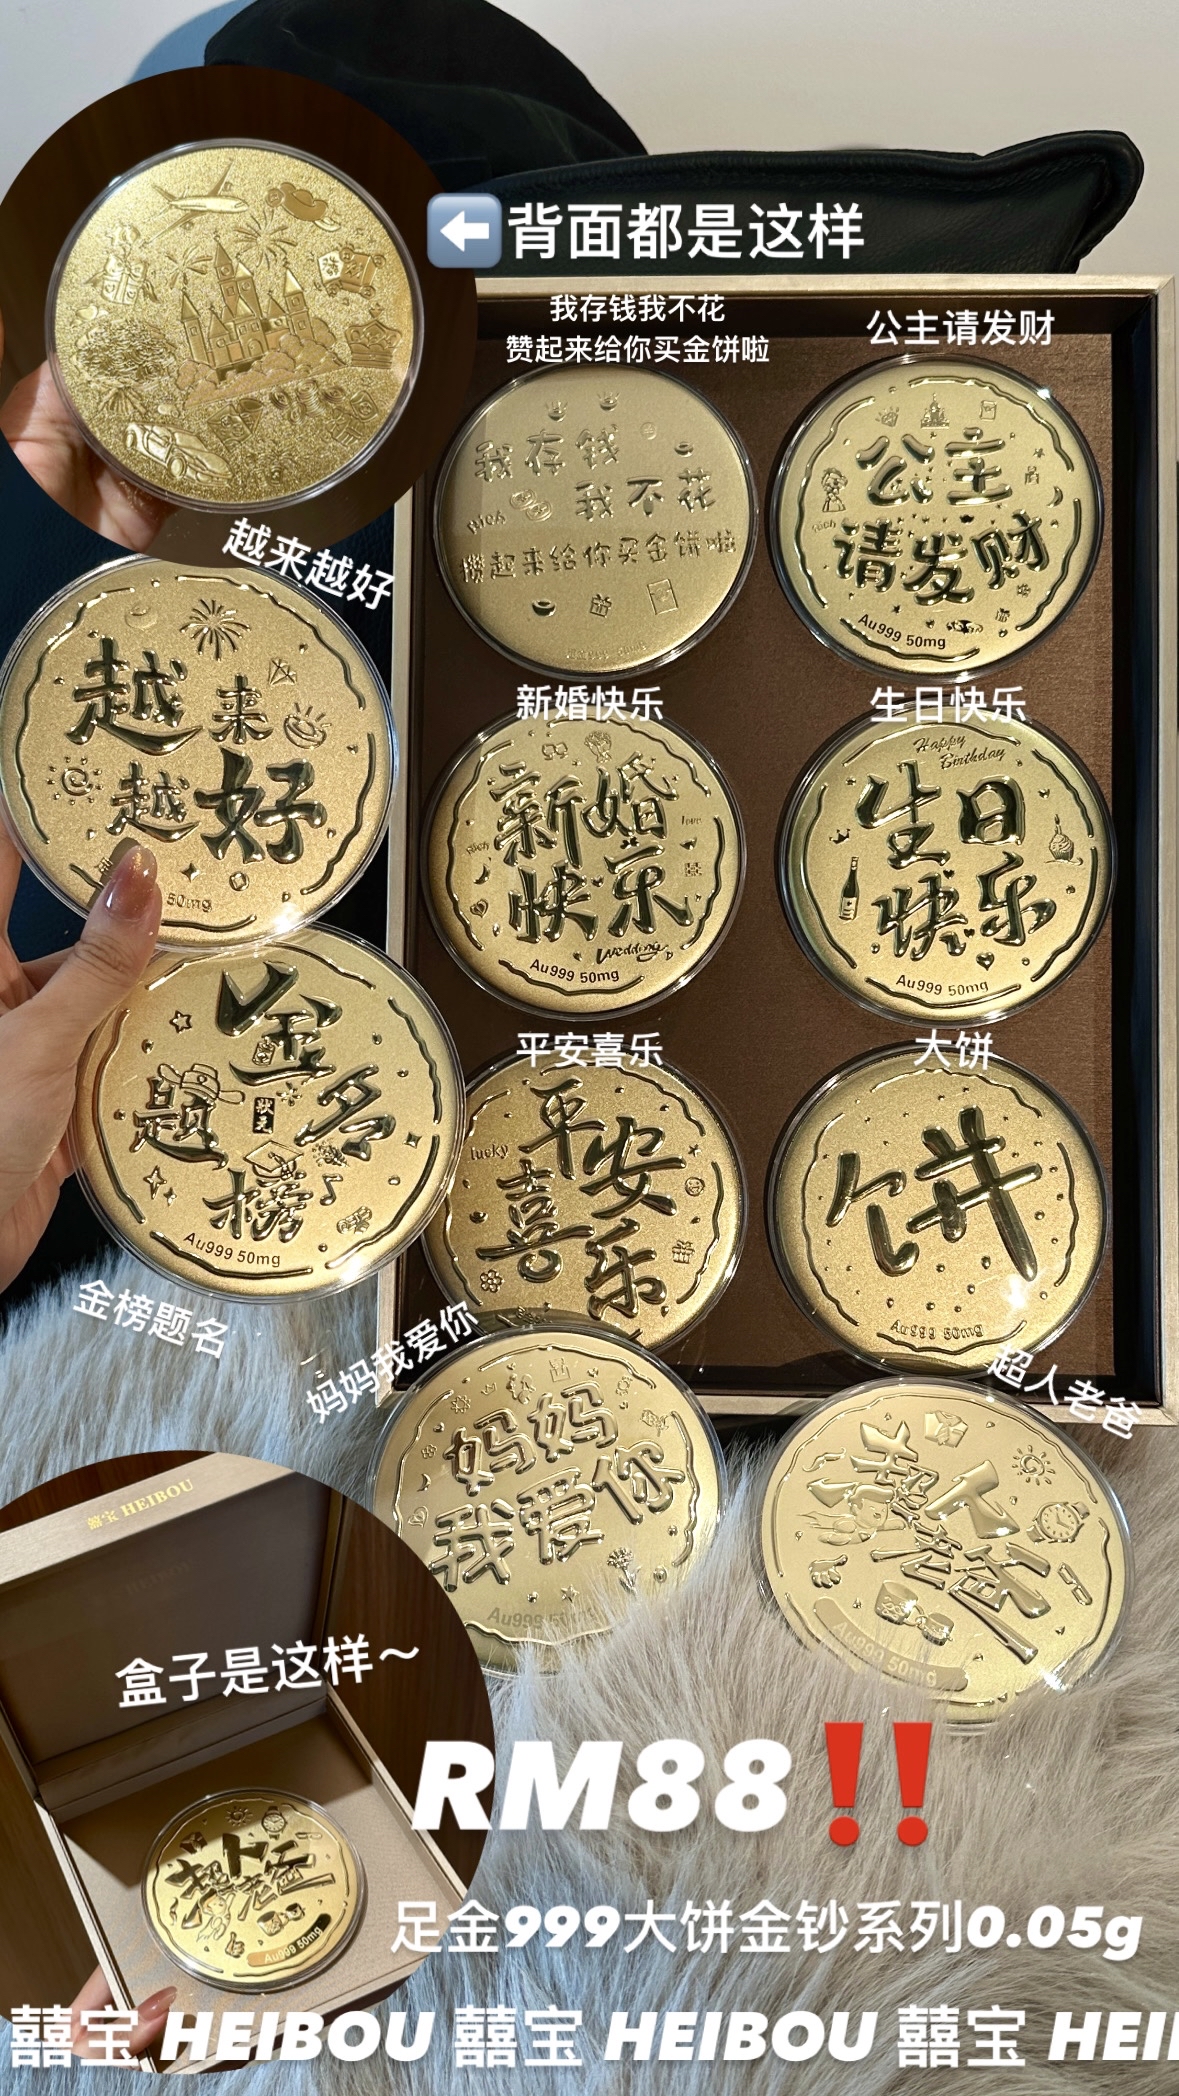 背面都是这样
我存钱我不花
赞起来给你买金饼啦
公主请发财
我存钱
我不花
Rich
攒起来给你买金饼啦
公主
请发财
Rich
Au999 50mg
越来越好
越来
越好
50mg
新婚快乐
生日快乐
新婚
快乐
love
Rich
Wedding
Au999 50mg
Happy
Birthday
生日
快乐
Au999 50mg
金名
题榜
状元
Au999 50mg
金榜题名
平安喜乐
大饼
平安
喜乐
lucky
饼
Au999 50mg
妈妈我爱你
超人老爸
妈妈
我爱你
Au999 50mg
超人
老爸
Au999 50mg
囍宝 HEIBOU
盒子是这样～
超人
老爸
Au999 50mg
RM88‼️
足金999大饼金钞系列0.05g
囍宝 HEIBOU 囍宝 HEIBOU 囍宝 HEI